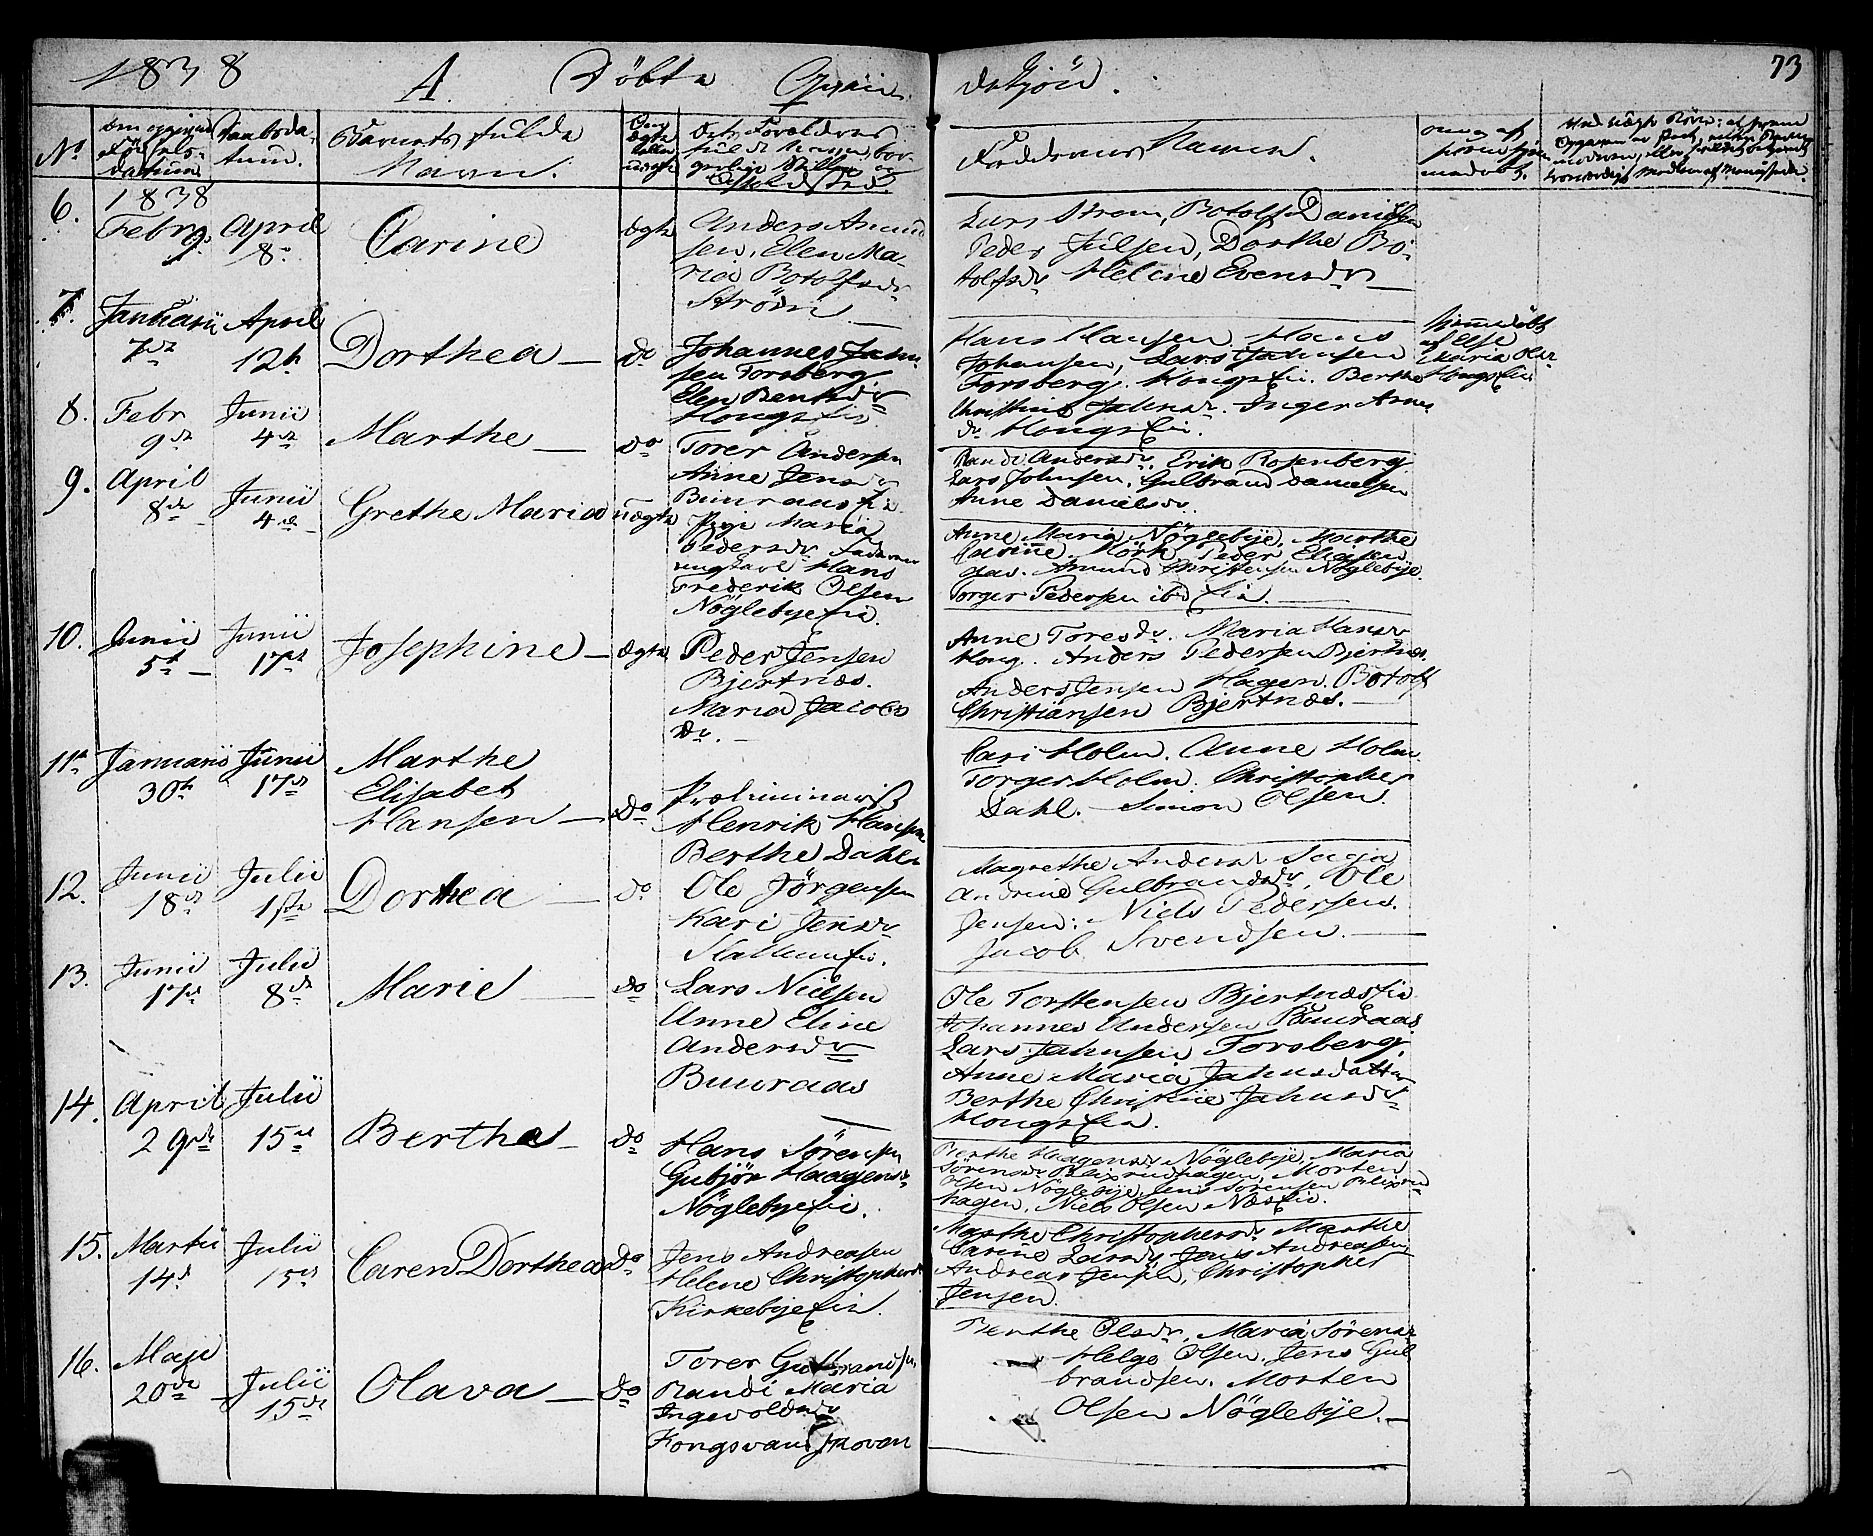 1838 A. Døbte Qvindekjön. 73
No
Daabsda-
tum.
Barnets fulde
Navn.
Faddernes Navne.
6. 1838
Febr 9. April 8. Carine ægte Anders Amund
sen, Elen Ma-
ria Botolfsdr
Ström
Lars Strøm, Botolf Danielsen
Peder Julsen, Dorthe Bo-
tolfsdr Helene Evensdr
7. Januarii 7de April 12te Dorthea do Johannes Jahn
sen Forsberg
Elen Bentsdr
Hongs Eie
Hans Hansen, Hans
Johansen, Lars Jahnsen
Forsberg. Hongs Eie. Berthe
Christine Jahnsdr. Inger Arnes
dr Hongs Eie.
hjemmedöbt
af Else
Maria Olsdr
Hongs Eie
8. Febr 9de Junii 4de Marthe do Torer Andersen
Anne Jensdr
Buuraas Eie
Randi Andersdr. Erik Rosenberg
Lars Johnsen. Gulbrand Danielsen
Anne Danielsdr.
9. April 8de Junii 4de Grethe Maria uægte Pige Maria
Pedersdr. Faderen
ungkarl Hans
Frederik Olsen
Nöglebye Eie.
Anne Maria Nöglebye. Marthe
Carine Mörk. Peder Eliasen
Aas. Amund Christensen Nöglebye.
Torger Pedersen ibd Eie.
10. Junii 5te Junii 17de Josephine ægte Peder Jensen
Bjertnæs.
Maria Jacobs
dr.
Anne Toresdr. Maria Hansdr
Hong. Anders Pedersen Bjertnæs.
Anders Jensen Hagen. Botolf
Christiansen Bjertnæs.
11te Januarii 30te Junii 17de Marthe
Elisabet
Hansen do Præliminarist
Henrik Hansen
Berthe Dahl
Cari Holm. Anne Holm.
Torger Holm. Christopher
Dahl. Simon Olsen.
12. Junii 18de Julii 1ste Dorthea do Ole Jörgensen
Kari Jensdr
Magrethe Andersdr
Andrine Gulbrandsdr, Ole
Jensen. Niels Pedersen.
Jacob Svendsen.
13. Junii 17de Julii 8de Marie do Lars Nielsen
Anne Eline
Andersdr
Buuraas
Ole Torstensen Bjertnæs Eie
Johannes Andersen Buuraas
Lars Jahnsen Forsberg.
Anne Maria Jahnsdatter
Berthe Christine Jahnsdr
Hongs Eie.
14. April 29de Julii 15de Berthe do Hans Sörensen
Gubjör Haagensdr
Nöglebye Eie.
Berthe Haagensdr Nöglebye, Maria
Sörensdr Blixrudhagen, Morten
Olsen Nöglebye, Jens Sörensen Blixrud
hagen, Niels Olsen Næs Eie.
15. Martii 14de Julii 15de Caren Dorthea do Jens Andreasen
Helene Christophersdr
Kirkebye Eie.
Marthe Christophersdr. Marthe
Carine Larsdr Jens Andreasen,
Andreas Jensen, Christopher
Jensen.
16. Maji 20de Julii 15de Olava do Torer Gulbrandsen
Randi Maria
Ingevoldsdr
Kongsvangskoven
Berthe Olsdr, Maria Sörensdr
Helge Olsen. Jens Gul
brandsen. Morten
Olsen Nöglebye.